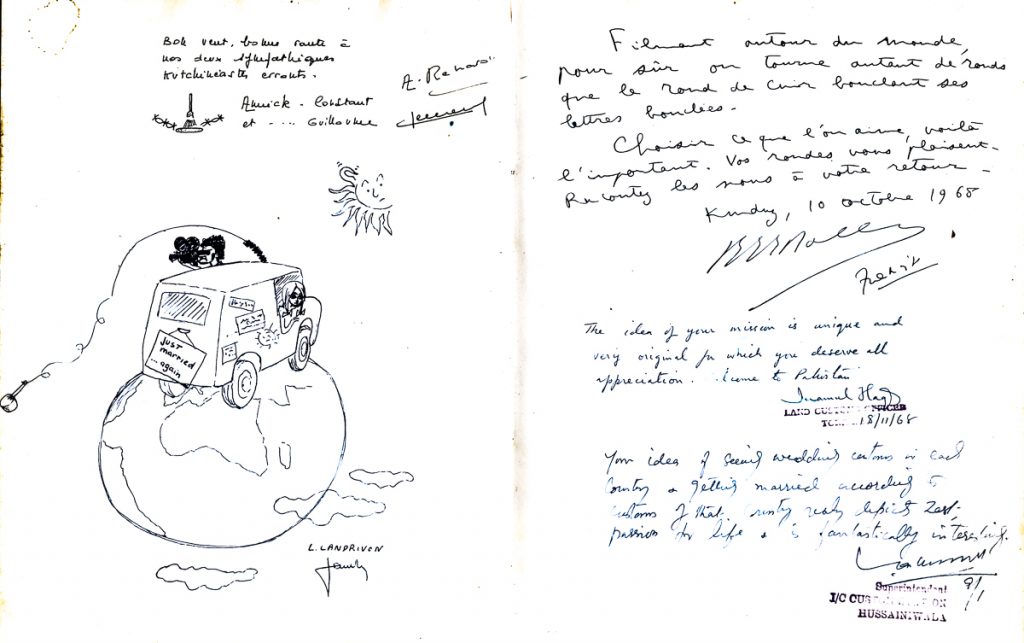 Bon vent, bonne route à
nos deux sympathiques
errants.
Annick - Constant
et .... Guillaume
A. Renard
just
married
...again
L. LANDRIVON
Filmant autour du monde,
pour sûr on tourne autant de ronds
que le rond de cuir bouclant ses
lettres bouclées.
Choisir ce que l'on aime, voilà
l'important. Vos rondes vous plaisent -
Racontez les nous à votre retour -
Kunduz, 10 octobre 1968
The idea of your mission is unique and
very original for which you deserve all
appreciation. to Pakistan
Inamul Haq
LAND CUSTOMS OFFICER
18/11/68
Your idea of seeing wedding customs in each
Country & getting married according to
customs of that really depicts zest,
passion for life & is fantastically interesting.
9/1
Superintendent
I/C
HUSSAINIWALA